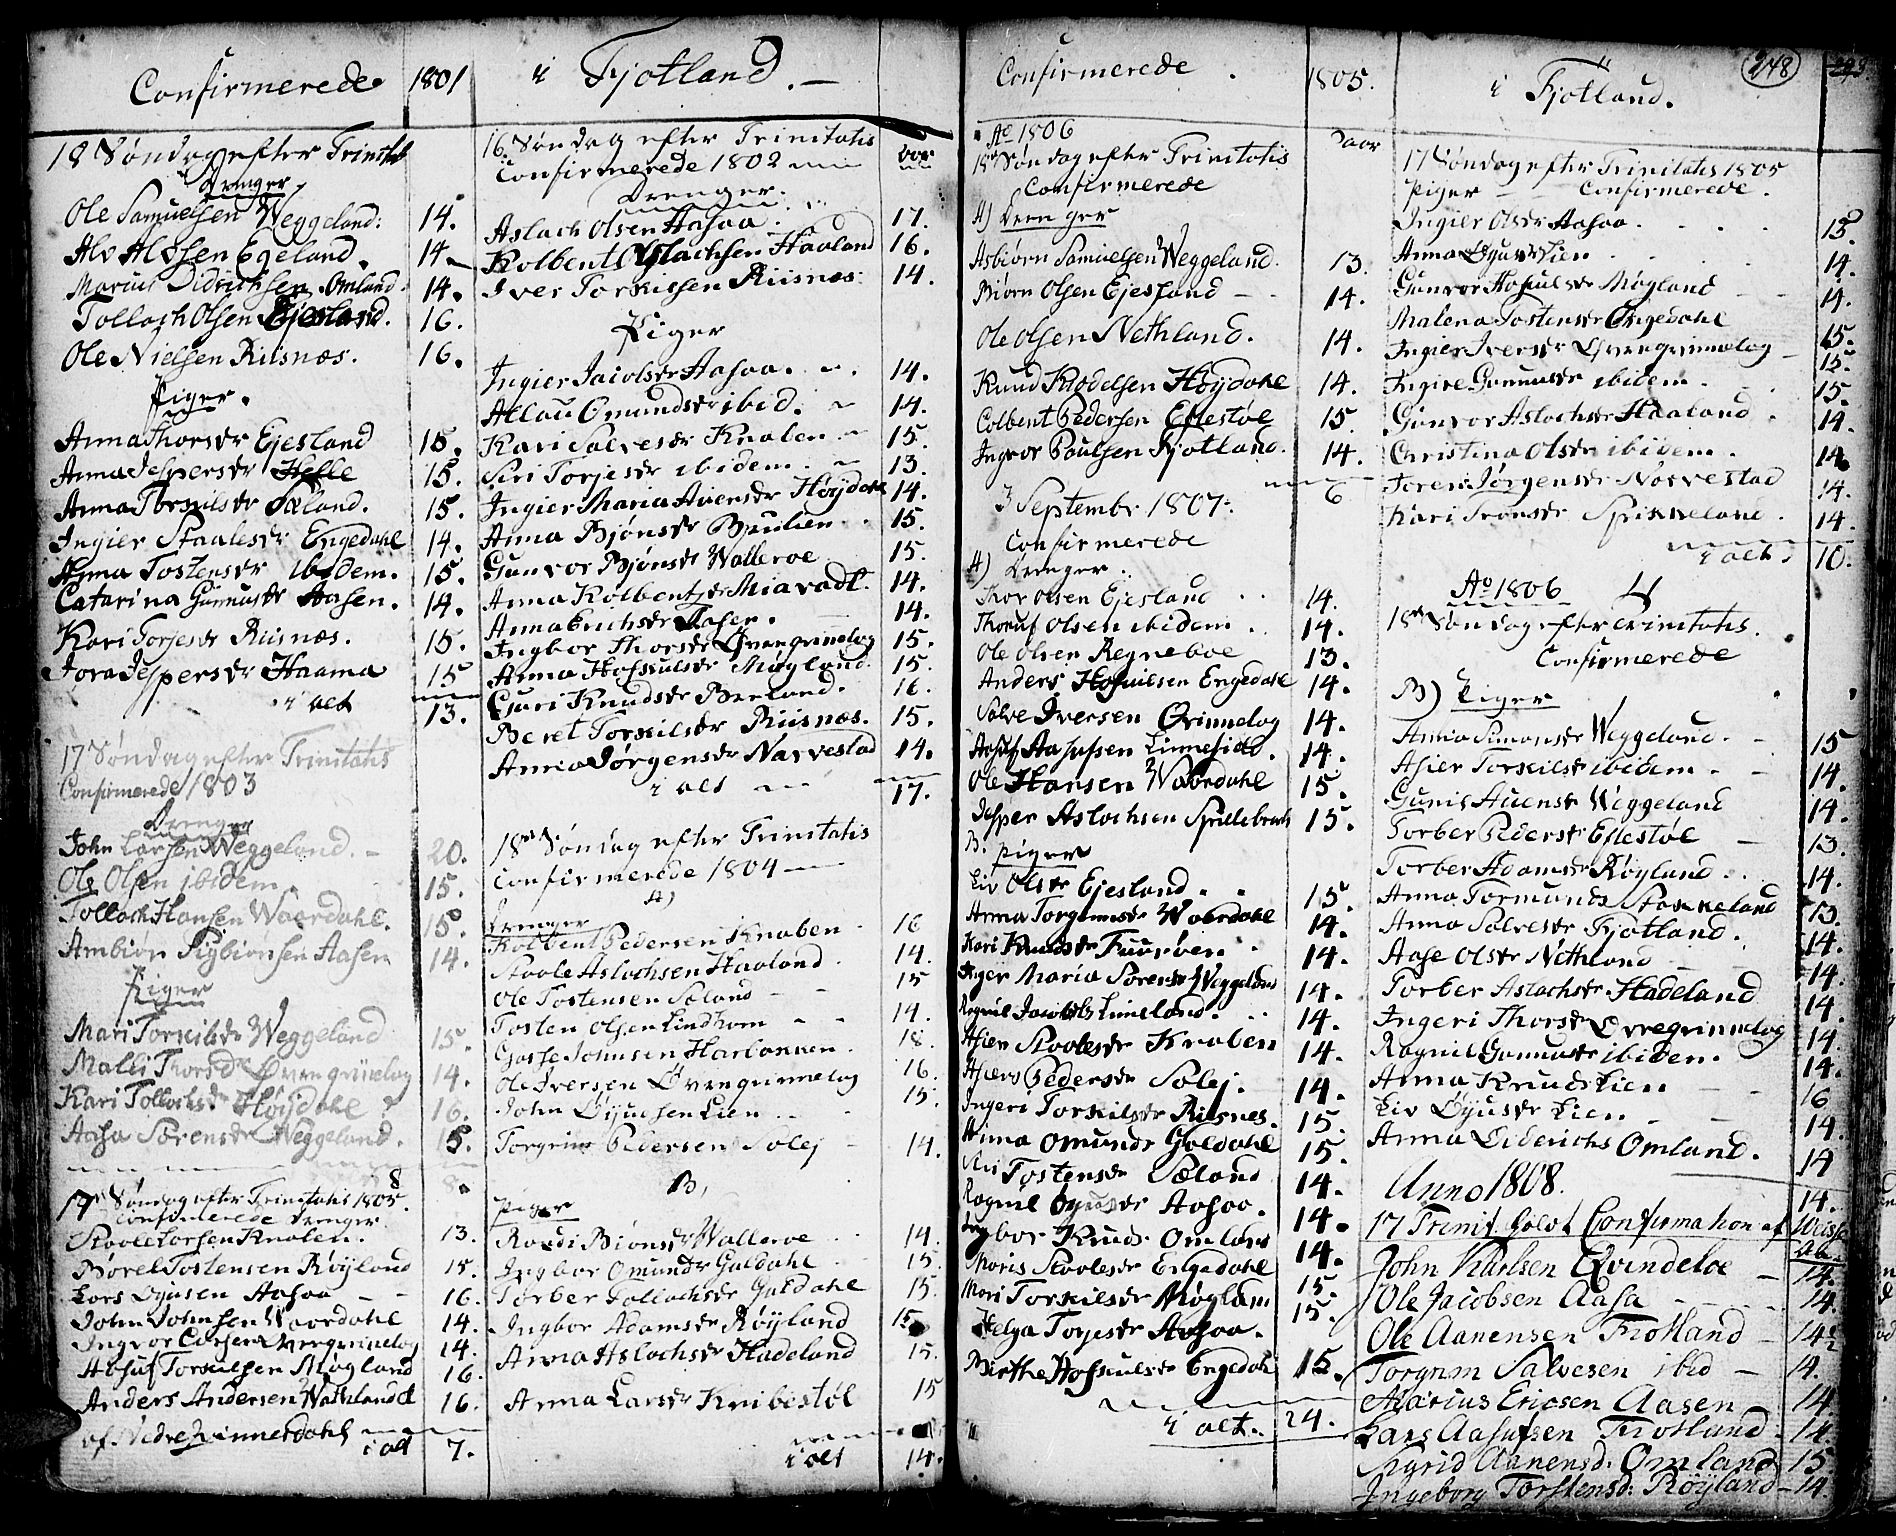 Confirmerede 1801 i Fjotland. —
18 Søndag efter Trinitat
Drenger
Ole Samuelsen Weggeland: 14.
Alv Alvsen Egeland. 14.
Marius Didrichsen Omland. 14.
Tollach Olsen Ejesland. 16.
Ole Nielsen Riisnæs. 16.
Piger.
Anna Thorsdr Ejesland 15.
Anna Jespersdr Helle 15.
Anna Torkilsdr Sæland. 15.
Ingier Staalesdr Engedahl 14.
Anna Tostensdr ibidem. 15.
Catarina Gunnusdr Aasen. 14.
Kari Torjesdr Riisnæs. 15.
Tora Jespersdr Haama 15
i alt 13.
17 Søndag efter Trinitatis
Confirmerede 1803
Drenger
John Larsen Weggeland. 20.
Ole Olsen ibidem. 15.
Tollach Hansen Waardahl. 15.
Ambiør Aasen 14.
Piger
Mari Torkilsdr Weggeland 15.
Malli Thorsdr Øvregrinelag 14.
Kari Tollachsdr Høydahl 16.
Aasa Sørensdr Weggeland. 15.
8.
17 Søndag efter Trinitatis 1805.
Confirmerede Drenger
Staale Larsen Knaben. 13.
Børel Tostensen Røyland 15.
Lars Øyusen Aasaa 16.
John Johnsen Waardahl 14.
Ingvor Larsen Øvregrinelag 14.
Aasuf Torkilsen Møgland 16.
Anders Andersen Nathland 16.
af Nedre Kvinnerdahl
i alt 7.
16 Søndag efter Trinitatis
Confirmerede 1802 aar
Drenger.
Aslach Olsen Aasaa. 17.
Kolbent Aslachsen Haaland 16.
Iver Torkilsen Riisnæs. 14.
Piger
Ingier Jacobsdr Aasaa. 14.
Allau Omundsdr ibid. 14.
Kari Salvesdr Knaben 15.
Siri Torjesdr ibidem. 13.
Ingier Maria Auensdr Høydahl 14.
Anna Bjønsdr Bpulien 15.
Gunvor Bjønsdr Walleroe 15.
Anna Kolbentsdr Miavadt. 14.
Anna Erichsdr Aasen. 14.
Ingbor Thorsdr Øvregrinelag 15.
Anna Hofskulsdr Møgland. 15.
Guri Knudsdr Bereland. 16.
Beret Torkilsdr Riisnæs. 15.
Anna Jørgensdr Narvestad 14.
i alt 17.
18de Søndag efter Trinitatis
Confirmerede 1804
A)
Drenger
Kolbent Pedersen Knaben 16
Staale Aslachsen Haaland. 14.
Ole Tostensen Sæland 15
Tosten Olsen Lindhom 14.
Gasse Johnsen Harbakken. 18.
Ole Iversen Øvregrinnelag 16.
John Øyusen Lien 15.
Torgrim Pedersen Solej 14.
B,
Piger
Randi Biønsdr Walleroe 14.
Ingbor Omundsdr Guldahl 15.
Torber Tollachsdr Guldahl 15.
Ingbor Adamsdr Røyland 15
Anna Aslachsdr Hadeland 15.
Anna Larsdr Knibestøl 15
i alt 14.
Confirmerede 1805. i Fjotland. 248
Ao 1806
18de Søndag efter Trinitatis aar
Confirmerede
A) Drenger
Asbiørn Samuelsen Weggeland. 13.
Biørn Olsen Ejesland 14.
Ole Olsen Nethland. 14.
Knud Kiødelsen Høydahl 14.
Colbent Pedersen Eftestøl 15.
Ingvor Paulsen Fjotland. 14.
6
3 September 1807.
Confirmerede
A) Drenger
Thor Olsen Ejesland 14.
Thoruf Olsen ibidem 14.
Ole Olsen Regneboe 13.
Anders Hofskulsen Engedahl 14.
Salve Iversen Grinnelag 14.
Aasuf Aasufsen Linnesied. 14.
Ole Hansen Waardahl 15.
Jesper Aslachsen Sprillebrach 15.
B. Piger
Liv Olsdr Ejesland 15.
Anna Torgrimsdr Waardahl 14.
Kari Knudsdr Fuurøen 14.
Inger Maria Sørensdr Weggeland 14.
Ragnil Jacobsdr Limeland. 14.
Asier Staalesdr Knaben 14.
Asiærs Pedersdr Solej. 14.
Ingeri Torkilsdr Riisnes. 15.
Anna Omundsdr Guldahl 15.
Siri Tostensdr Sæland 14.
Ragnil Øyusdr Aasaa. 14.
Ingbor Knudsdr Omland 14.
Maris Staalesdr Engedahl 15.
Mari Torkilsdr Møgland 15.
Helga Torjesdr Aasaa.
Birthe Hofskulsdr Engedahl 15.
i alt. 24.
17 Søndag efter Trinitatis 1805
Piger Confirmerede.
Ingier Olsdr Aasaa 15.
Anna Øyusdr Lien 14.
Gunvor Hofskulsdr Møgland 14.
Malena Tostensdr Engedahl 15.
Ingier Iversdr Øvregrinnelag 15.
Ingier Gunnusdr ibidem. 15.
Gunvor Aslachsdr Haaland 14.
Christina Olsdr ibidem. 14
Toren Jørgensdr Narvestad 14.
Kari Tronsdr Sprikkeland. 14.
i alt 10.
Ao 1806
18de Søndag efter Trinitatis.
Confirmerede
B) Piger
Anna Simonsdr Weggeland. 15
Asier Torkilsdr ibidem 14.
Gunild Auensdr Weggeland 14.
Torber Pedersdr Eftestøl 13.
Torber Adamsdr Røyland 14.
Anna Tormundsdr Stakkeland 13.
Anna Salvesdr Fjotland. 14.
Aase Olsdr Nethland 14.
Torber Aslachsdr Hadeland 14.
Ingeri Thorsdr Øvregrinnelag 14.
Ragnil Gunnusdr ibidem. 14.
Anna Knudsdr Lien 16
Liv Øyusdr Lien. 14.
Anna Diderichs Omland. 14
14.
Anno 1808.
17 Trinit. holdt Confirmation af Weisse
John Karlsen Qvindeloe — 14.
Ole Jacobsen Aasa 14.
Ole Aanensen Fiotland — 14½
Torgrim Salvesen ibid — 14.
Marius Ericsen Aasen 14
Lars Aasufsen Fiotland — 14.
Sigrid Aanensd: Omland 15
Ingeborg Torstensd: Røyland — 14.